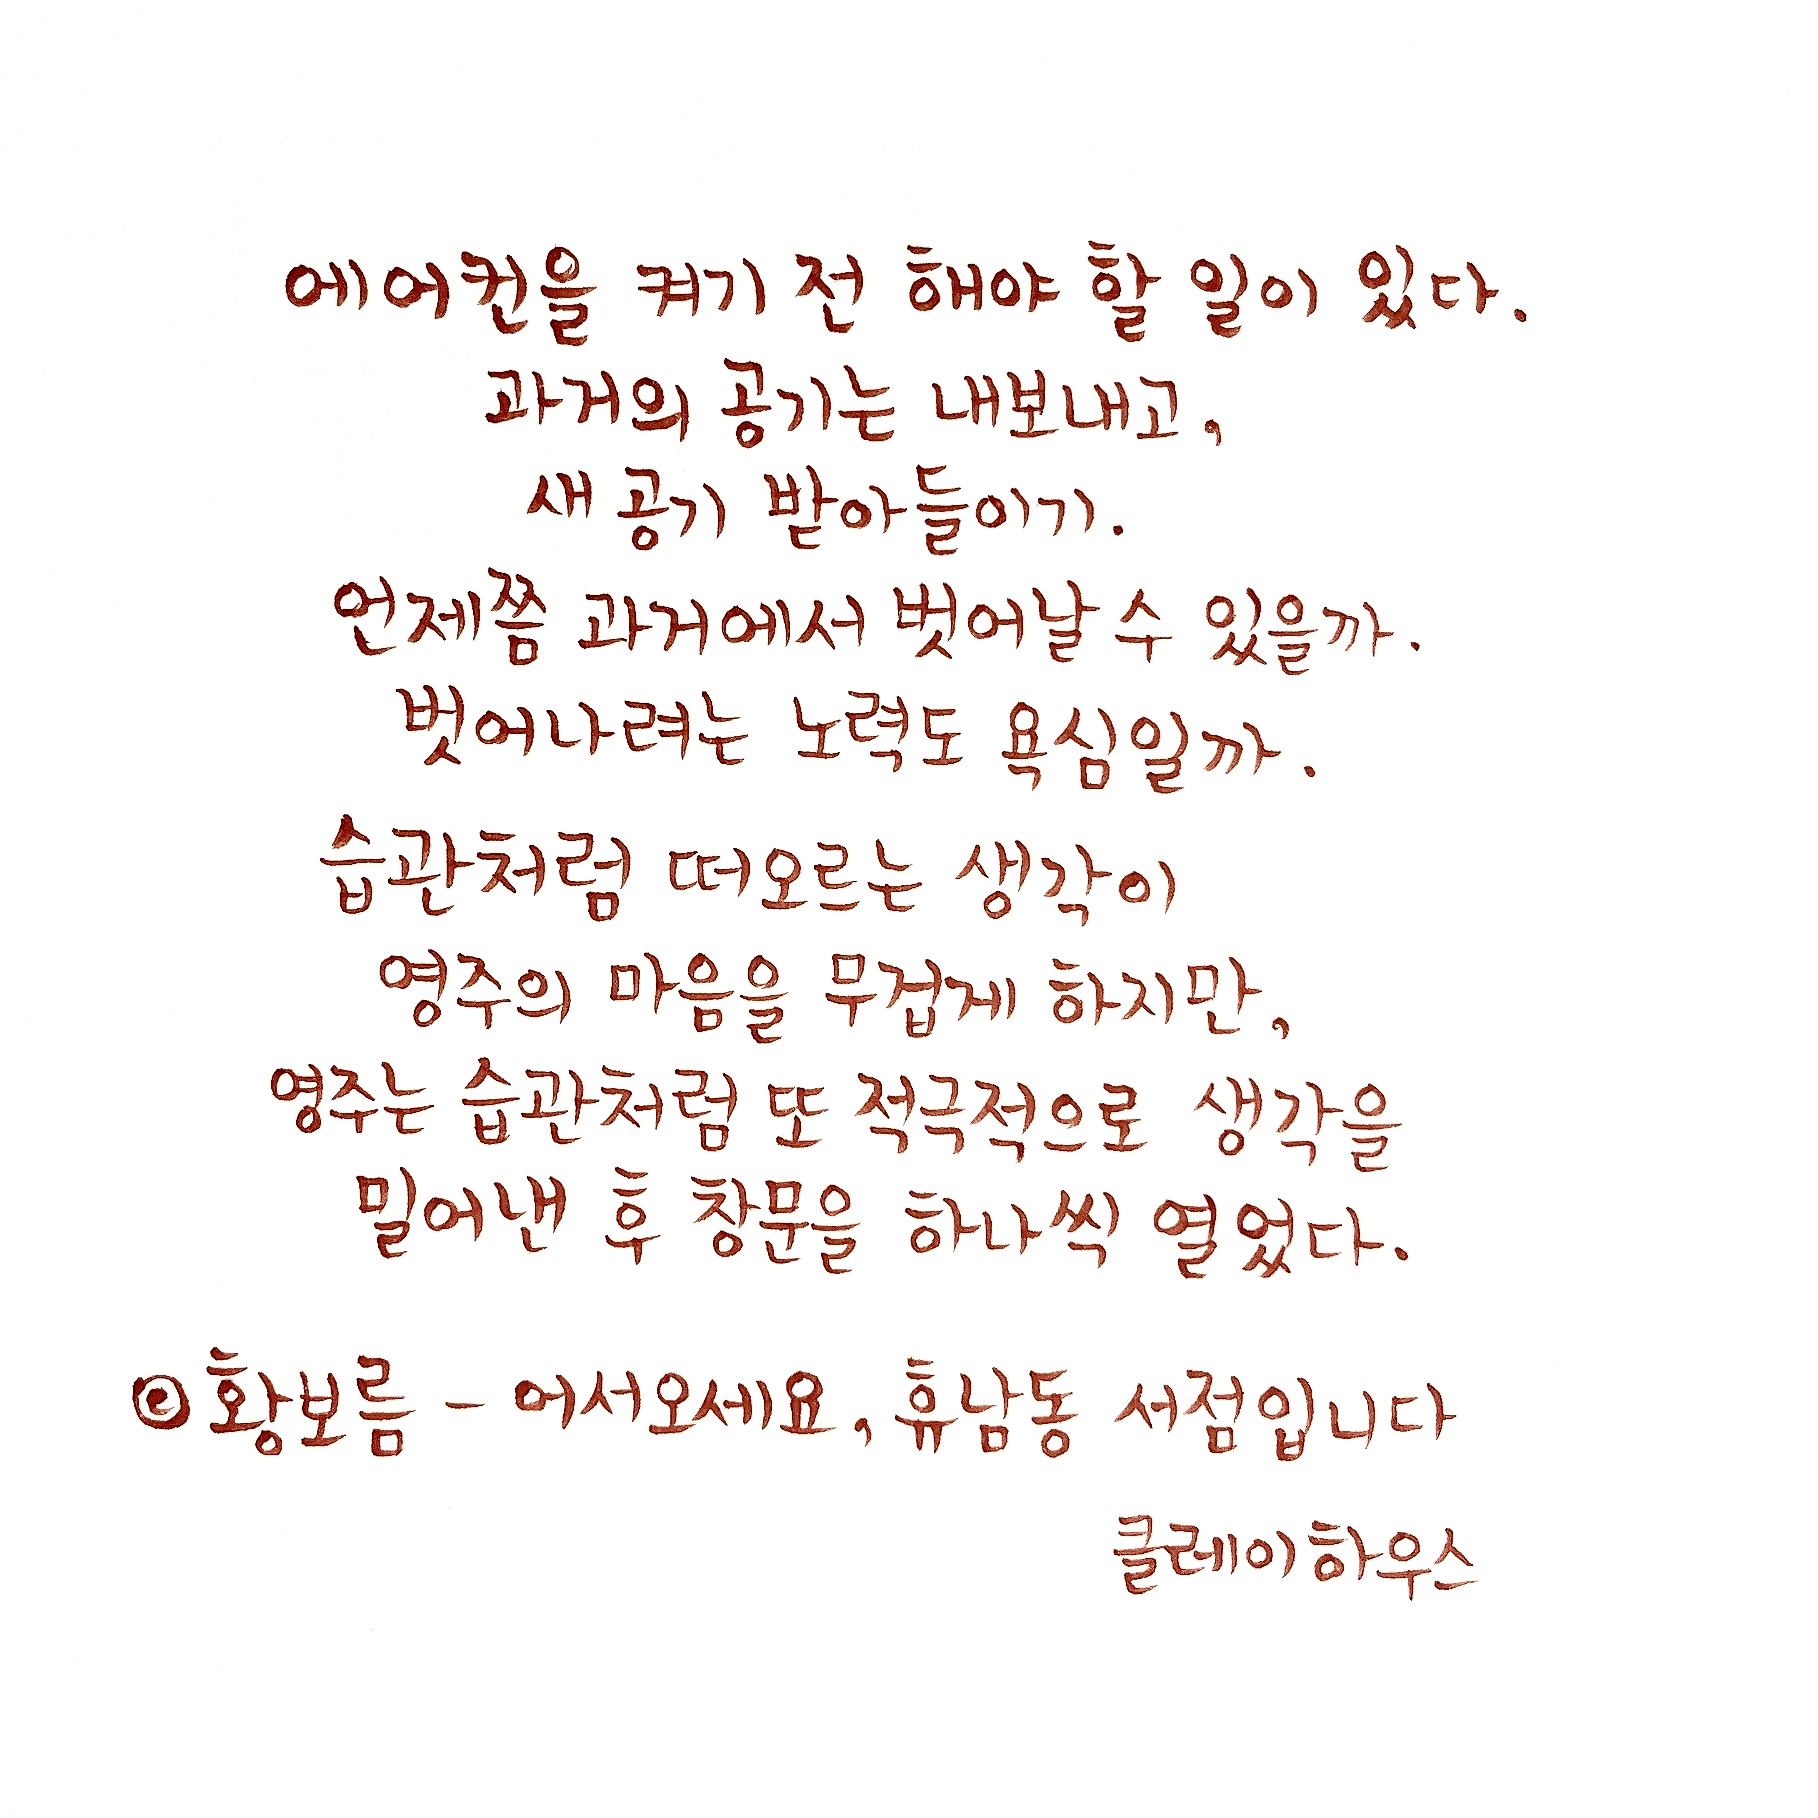 에어컨을 켜기 전 해야 할 일이 있다.
과거의 공기는 내보내고,
새 공기 받아들이기.
언제쯤 과거에서 벗어날 수 있을까.
벗어나려는 노력도 욕심일까.
습관처럼 떠오르는 생각이
영주의 마음을 무겁게 하지만,
영주는 습관처럼 또 적극적으로 생각을
밀어낸 후 창문을 하나씩 열었다.
ⓒ황보름 - 어서오세요, 휴남동 서점입니다
클레이하우스